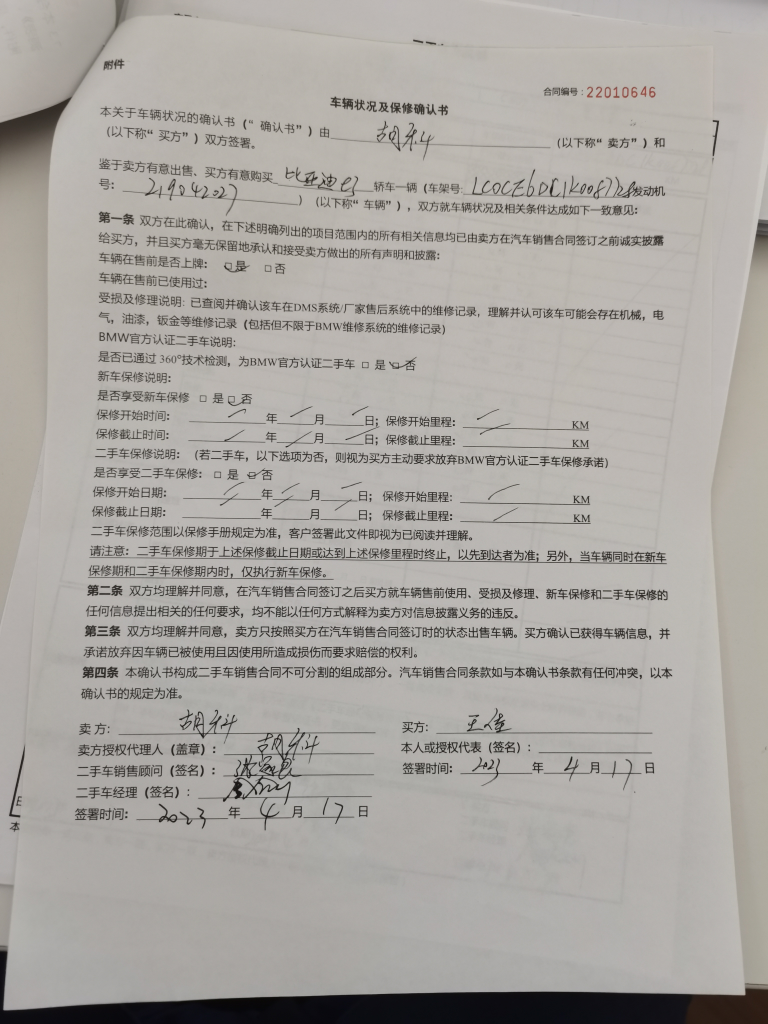 附件
合同编号：22010646
车辆状况及保修确认书
本关于车辆状况的确认书（“确认书”）由 胡 （以下称“卖方”）和
（以下称“买方”）双方签署。
鉴于卖方有意出售、买方有意购买 比亚迪 轿车一辆（车架号: 发动机
号: 219042027 ）（以下称“车辆”），双方就车辆状况及相关条件达成如下一致意见：
第一条 双方在此确认，在下述明确列出的项目范围内的所有相关信息均已由卖方在汽车销售合同签订之前诚实披露
给买方，并且买方毫无保留地承认和接受卖方做出的所有声明和披露：
车辆在售前是否上牌： □ 是 □ 否
车辆在售前已使用过：
受损及修理说明: 已查阅并确认该车在DMS系统/厂家售后系统中的维修记录，理解并认可该车可能会存在机械，电
气，油漆，钣金等维修记录（包括但不限于BMW维修系统的维修记录）
BMW官方认证二手车说明:
是否已通过 360°技术检测，为BMW官方认证二手车 □ 是 □ 否
新车保修说明:
是否享受新车保修 □ 是 □ 否
保修开始时间： 年 月 日；保修开始里程: KM
保修截止时间： 年 月 日；保修截止里程: KM
二手车保修说明: （若二手车，以下选项为否，则视为买方主动要求放弃BMW官方认证二手车保修承诺）
是否享受二手车保修：□ 是 □ 否
保修开始日期： 年 月 日； 保修开始里程: KM
保修截止日期： 年 月 日； 保修截止里程: KM
二手车保修范围以保修手册规定为准，客户签署此文件即视为已阅读并理解。
请注意：二手车保修期于上述保修截止日期或达到上述保修里程时终止，以先到达者为准；另外，当车辆同时在新车
保修期和二手车保修期内时，仅执行新车保修。
第二条 双方均理解并同意，在汽车销售合同签订之后买方就车辆售前使用、受损及修理、新车保修和二手车保修的
任何信息提出相关的任何要求，均不能以任何方式解释为卖方对信息披露义务的违反。
第三条 双方均理解并同意，卖方只按照买方在汽车销售合同签订时的状态出售车辆。买方确认已获得车辆信息，并
承诺放弃因车辆已被使用且因使用所造成损伤而要求赔偿的权利。
第四条 本确认书构成二手车销售合同不可分割的组成部分。汽车销售合同条款如与本确认书条款有任何冲突，以本
确认书的规定为准。
卖 方： 胡
买方： 王
卖方授权代理人（盖章）： 胡
本人或授权代表（签名）：
二手车销售顾问（签名）：
签署时间： 2023 年 4 月 17 日
二手车经理（签名）：
签署时间： 2023 年 4 月 17 日